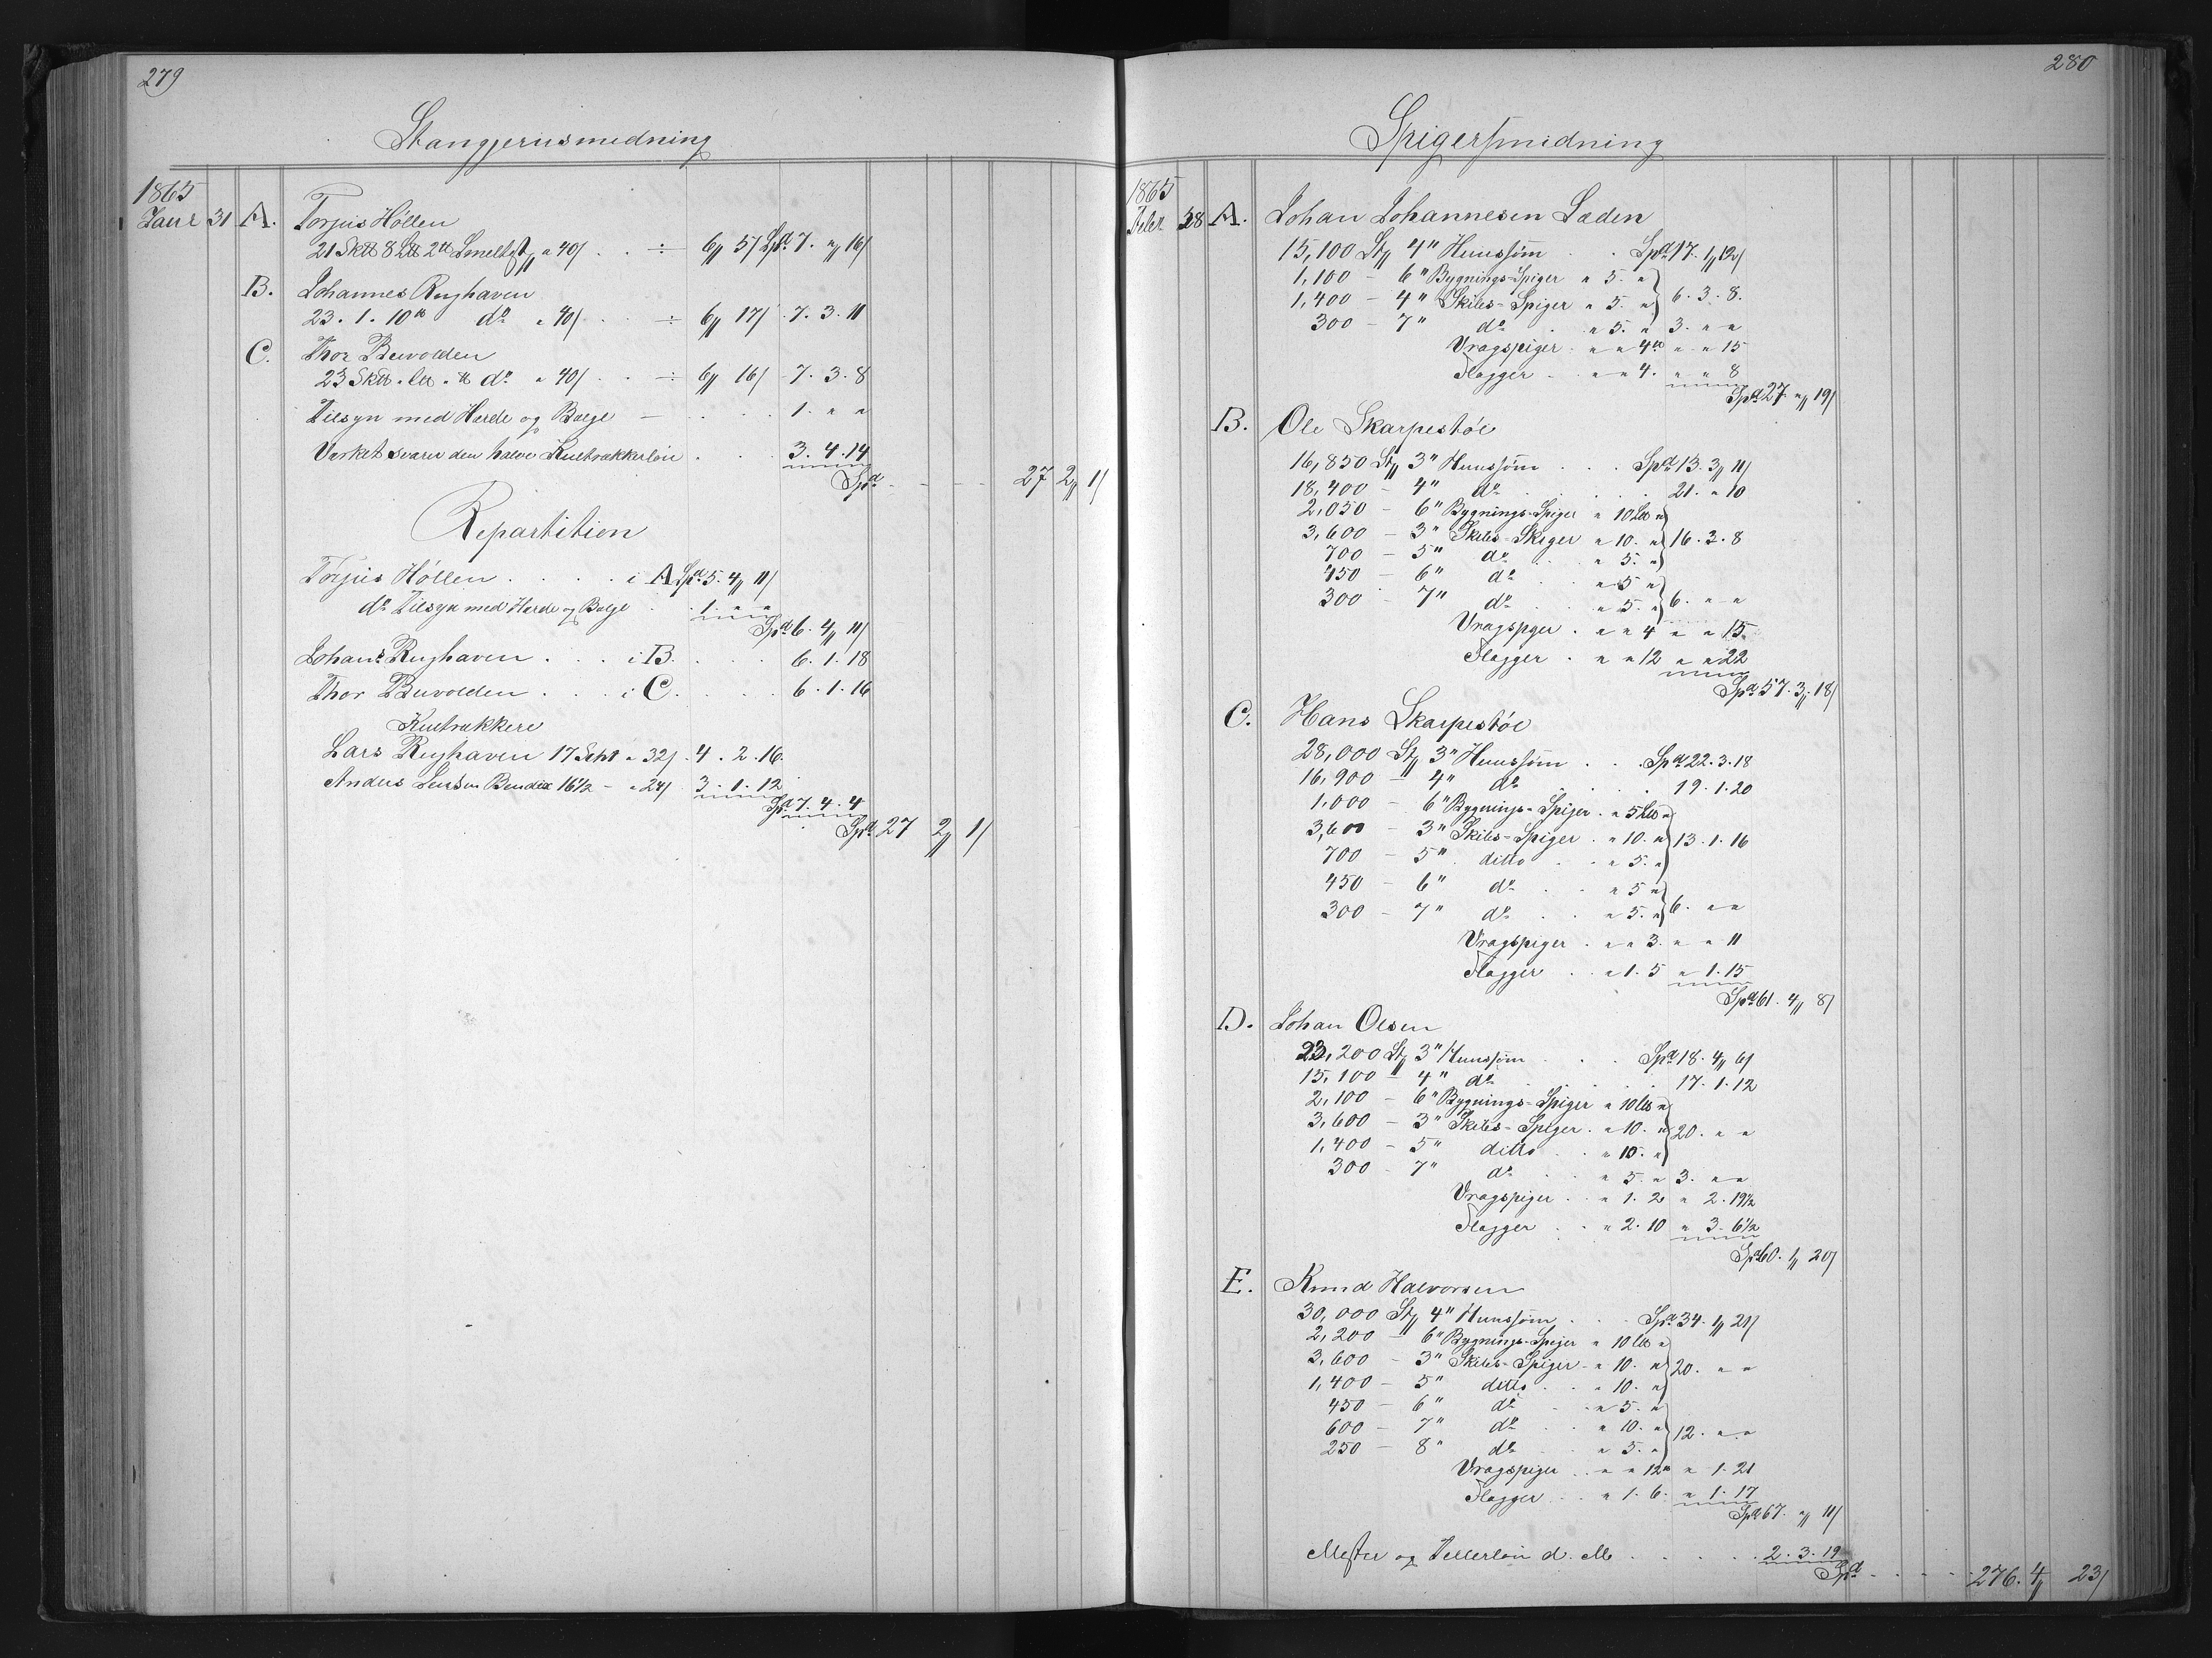 279
Stangjernsmedning
1865
Janr 31 A. Torjus Höllen
21 Sktt 8 Ltt 2 tt Smeltst a 40/ . . ÷ 6 51 Spd 7. " 16/
B. Johannes Rughaven
23. 1. 10 tt do a 40/ . . ÷ 6 17/ . 7. 3. 11
C. Thor Buvolden
23 Sktt " Ltt " tt do a 40/ . . ÷ 6 16/ - 7. 3. 8
Tilsyn med Herde og Bælge — . . . . 1. " "
Værket svarer den halve Kultrækkerløn . . . 3. 4. 14
Spd - - - - 27 2 1/
Repartition
Torjus Höllen . . . . . i A Spd 5. 4 11/
do Tilsyn med Herde og Bælge . . 1. " "
Spd 6. 4 11/
Johans Rughaven . . . i B. . . . . 6. 1. 18
Thor Buvolden . . . . i C. . . . . 6. 1. 16
Kultrækkere
Lars Rughaven 17 Scht a 32/ . 4. 2. 16.
Anders Bendix 16 1/2 - a 24/ 3. 1. 12
Spd. 7. 4. 4
Spd 27 2 1/
280
Spigersmidning
1865
Febr 28 A. Johan Johannesen Læden
15,100 St 4" Huussöm . . Spd 17. 1 12/
1,100 - 6" Bygnings-Spiger " 5. "
1,400 - 4" Skibs-Spiger " 5. " 6. 3. 8.
300 - 7" do . " 5. " 3. " "
Vragspiger . " " 4 tt " " 15
Flagger . . " " 4. " " 8
Spd 27 " 19/
B. Ole Skarpestöl
16,850 St 3" Huussöm . . . Spd 13. 3 11/
18,400 - 4" do . . . . . 21. " 10
2,050 - 6" Bygnings-Spiger " 10 Ltt "
3,600 - 3" Skibs-Skiger " 10. " 16. 3. 8
700 - 5" do . . " 5. "
450 - 6" do . . " 5 "
300 - 7" do . . " 5. " 6. " "
Vragspger . " " 4 " " 15
Flagger . " " 12 " " 22
Spd 57. 3 18/
C. Hans Skarpestöl
28,000 St 3" Huussöm . . . Spd 22. 3. 18
16,900 - 4" do . . . . 19. 1. 20
1,000 - 6" Bygnings-Spiger . " 5 Ltt "
3,600 - 3" Skibs-Spiger . " 10. " 13. 1. 16
700 - 5" ditto . . " 5. "
450 - 6" do . . " 5 "
300 - 7" do . . " 5. " 6. " "
Vragspiger . " " 3. " " 11
Flagger . . " 1. 5 " 1. 15
Spd 61. 4 8/
D. Johan Olsen
23,200 St 3" Huussöm . . . Spd 18. 4 6/
15,100 - 4" do . . . . . 17. 1. 12
2,100 - 6" Bygnings-Spiger " 10 Ltt "
3,600 - 3" Skibs-Spiger . " 10. " 20. " "
1,400 - 5" ditto . . " 10. "
300 - 7" do . . " 5. " 3. " "
Vragspiger . . " 1. 2 " 2. 19 1/2
Flagger . . " 2. 10 " 3. 6 1/2
Spd 60. 1 20/
E. Knud Halvorsen
30,000 St 4" Huussöm . . . Spd 34. 1 21/
2,200 - 6" Bygnings-Spiger " 10 Ltt "
3,600 - 3" Skibs-Spiger - " 10. " 20. " "
1,400 - 5" ditto . . " 10. "
450 - 6" do . . " 5. "
600 - 7" do . . " 10. " 12. " "
250 - 8" do . . " 5. "
Vragspiger . . " " 12 tt " 1. 21
Flagger . . " 1. 6. " 1. 17
Spd 67. " 11/
Mester og Tellerløn d. M . . . . . . 2. 3. 19
Spd . . . . 276. 4 23/